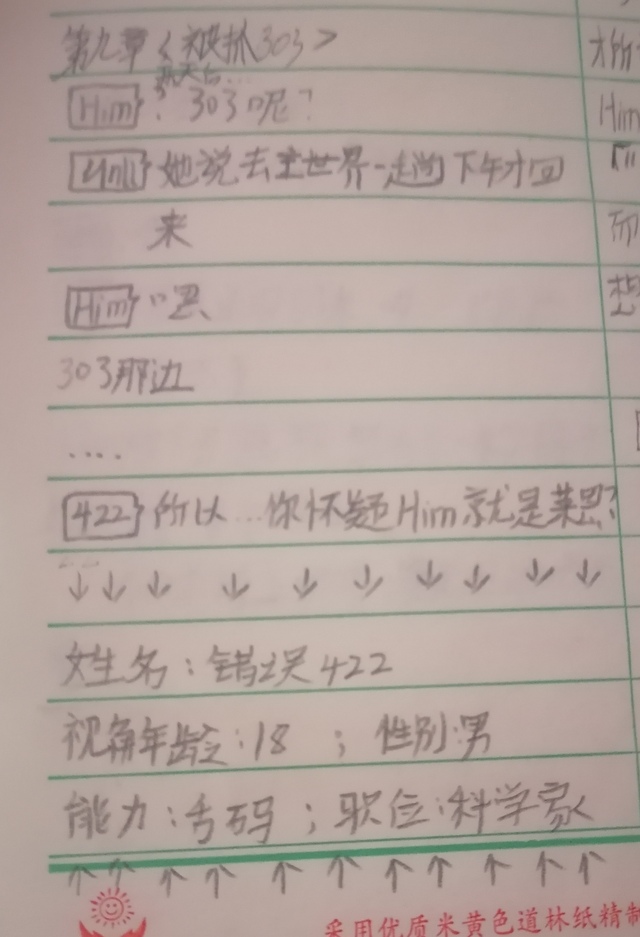 第九章〈被抓303〉
几天后...
Him: ? 303呢?
null: 她说去主世界一趟 下午才回
来
Him: 嗯
303那边
....
422: 所以...你怀疑Him就是莱恩?
↓↓↓ ↓ ↓ ↓ ↓ ↓ ↓ ↓
姓名:错误422
视角年龄:18 ; 性别:男
能力:号码 ; 职位:科学家
↑↑↑↑ ↑ ↑ ↑ ↑ ↑ ↑ ↑
采用优质米黄色道林纸精制
才所
Him
而
想